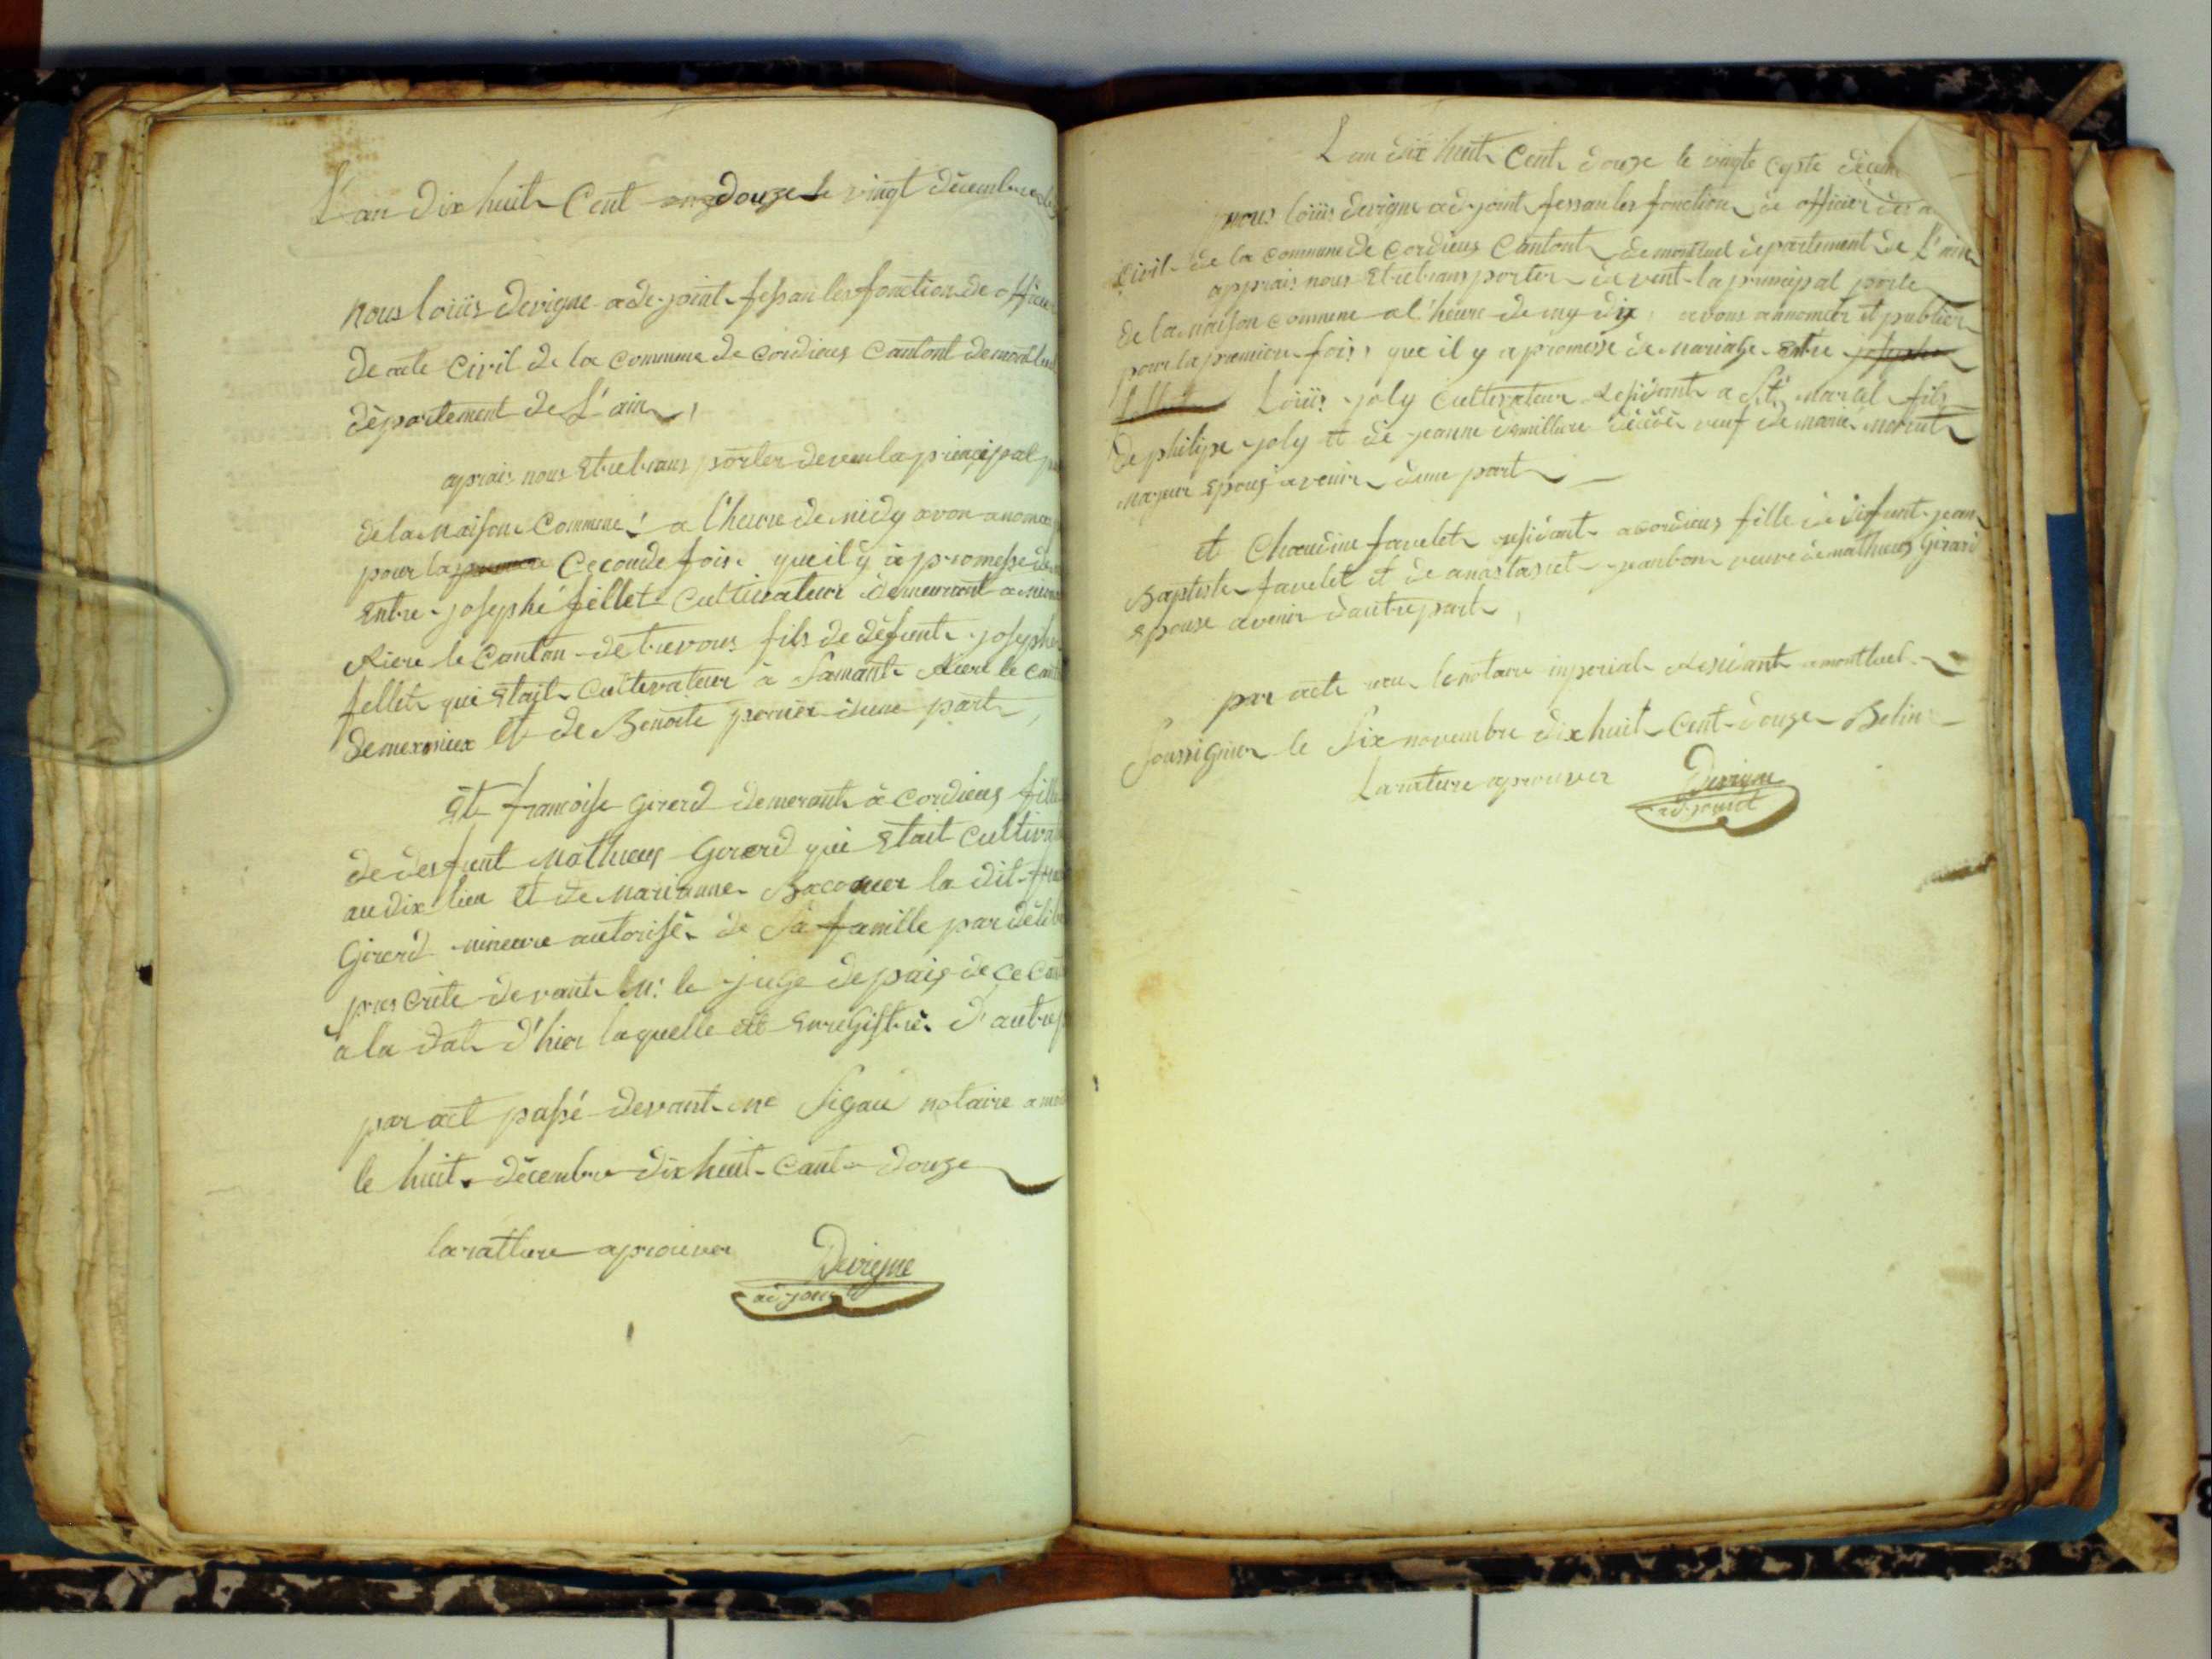 L'an dix huit Cent douze le vingt décembre
nous loüis devigne ade-joint fessan les fonction de officier
de acte Civil de la commune de cordieus Cantont de montluel
département de L'ain,
aprais nous Etre trans porter deven la principal
de la Maison Commune a l'heure de midy avon anonce
pour la premiere Ceconde fois que il y a promesse de
Entre josephe fellet Cultivateur demeurant a
Riere le Canton de trevous fils de défunt josephe
fellet qui Etait Cultivateur à Samant Riere le cant
de mexmieux Et de Benoite perrier d'une part,
Et francoise Girerd demerant à Cordieus fille
de desfunt Mathieus Girerd qui Etait Cultivat
au dix lieu Et de marianne la dit
Girerd mineure autorisé de Sa famille par délib
pres crite devant Mr le juge de paig de ce Can
a la date d'hier laquelle été Enregistré d'autre p
par act passé devant me Sigaud notaire a mont
le huit décembre dix huit Cent douze
la ratture aprouver Devigne
adjoint
L an dix huit Cent douze le vingte cysté décem
nous loüis devigne adjoint fessan les fonction de officier des a
Civil de la commune de cordieus Cantont de montluel departement de L'ain
apprais nous Etre trans porter devent la principal porte
de la maison commune a l'heure de my dix avons annoncer et publier
pour la premiere fois que il y a promesse de mariage Entre josephe
fellet Loüis joly Cultivateur Residant a St marcel fils
de philipe joly et de jeanne décédé veuf de marie morent
majeur Epous avenir d'une part
et Claudine favelet residant a cordieus fille de difunt jean
Baptiste favelet et de anastasiet janbon veuve de mathieus Girard
Epouse avenir d'autre part,
par acte recu le notaire inperial Resident a montluel
Soussigner le Six novembre dix huit Cent douze Belin
La rature aprouver Devigne
adjoint